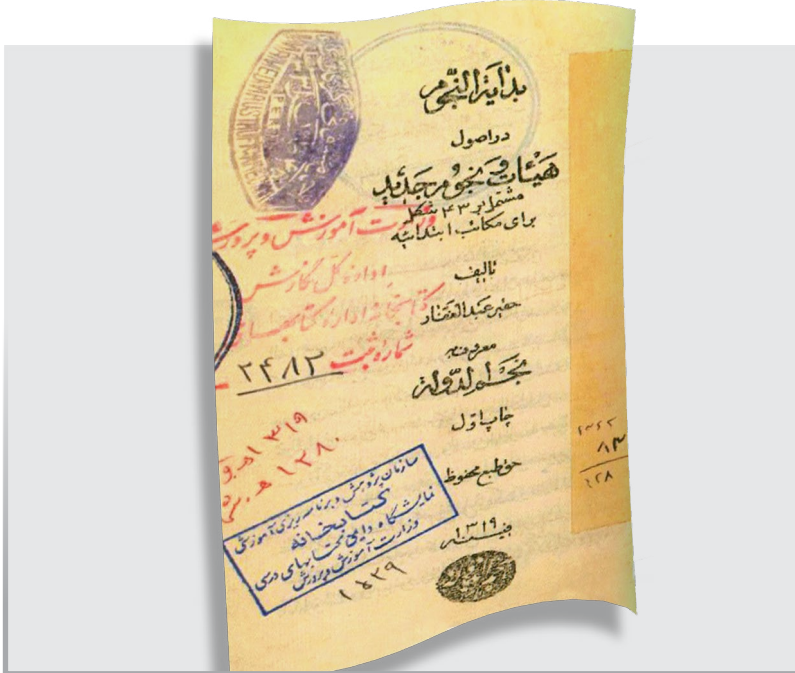 بدایة النجوم
در اصول
هیئات و نجوم جدید
مشتمل بر ۴۳ شکل
برای مکاتب ابتدائیه
تألیف
حقیر عبدالغفار
معروف به
نجم الدوله
چاپ اول
حق طبع محفوظ
۱۳۱۹
وزارت آموزش و پرورش
اداره کل نگارش
کتابخانه اداره کتابهای
شماره ثبت ۲۴۸۳
۱۳۱۹ ه‍.ق
۱۲۸۰ ه‍.ش
سازمان پژوهش و برنامه ریزی آموزشی
کتابخانه
نمایشگاه دایمی کتابهای درسی
وزارت آموزش و پرورش
۱۵۳۹
۸۳
۱۲۸